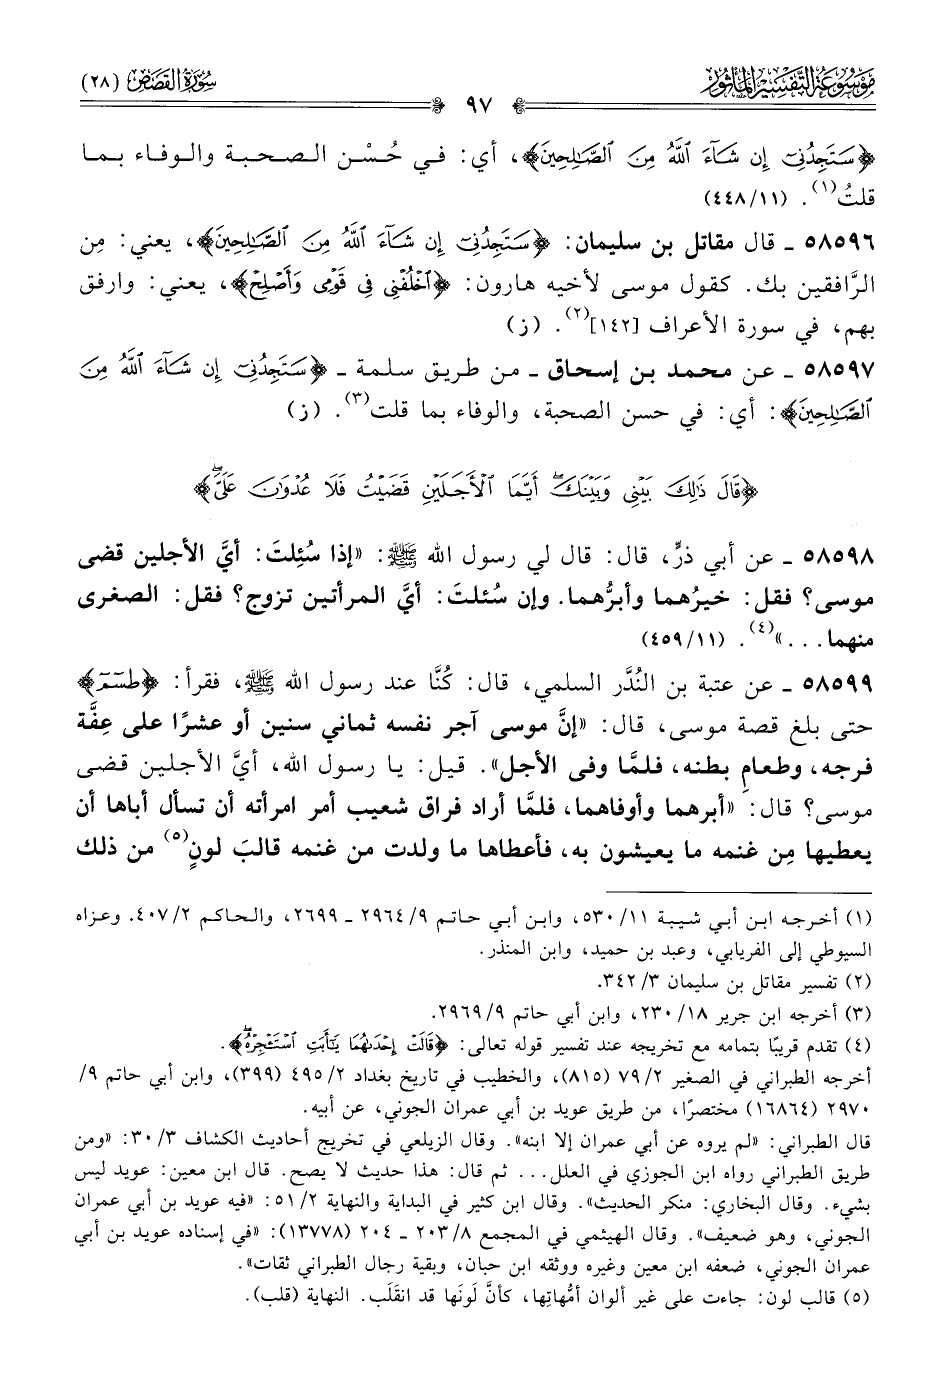 موسوعة التفسير المأثور
سورة القصص (٢٨)
٩٧
﴿سَتَجِدُنِىٓ إِن شَآءَ ٱللَّهُ مِنَ ٱلصَّٰلِحِينَ﴾، أي: في حُسْن الصحبة والوفاء بما
قلتُ(١). (٤٤٨/١١)
٥٨٥٩٦ ـ قال مقاتل بن سليمان: ﴿سَتَجِدُنِىٓ إِن شَآءَ ٱللَّهُ مِنَ ٱلصَّٰلِحِينَ﴾، يعني: مِن
الرَّافقين بك. كقول موسى لأخيه هارون: ﴿ٱخْلُفْنِى فِى قَوْمِى وَأَصْلِحْ﴾، يعني: وارفق
بهم، في سورة الأعراف [١٤٢](٢). (ز)
٥٨٥٩٧ ـ عن محمد بن إسحاق ـ من طريق سلمة ـ ﴿سَتَجِدُنِىٓ إِن شَآءَ ٱللَّهُ مِنَ
ٱلصَّٰلِحِينَ﴾: أي: في حسن الصحبة، والوفاء بما قلت(٣). (ز)
﴿قَالَ ذَٰلِكَ بَيْنِى وَبَيْنَكَ ۖ أَيَّمَا ٱلْأَجَلَيْنِ قَضَيْتُ فَلَا عُدْوَٰنَ عَلَىَّ ۖ﴾
٥٨٥٩٨ ـ عن أبي ذرٍّ، قال: قال لي رسول الله ﷺ: «إذا سُئِلتَ: أيَّ الأجلين قضى
موسى؟ فقل: خيرُهما وأبرُّهما. وإن سُئلتَ: أيَّ المرأتين تزوج؟ فقل: الصغرى
منهما...»(٤). (٤٥٩/١١)
٥٨٥٩٩ ـ عن عتبة بن النُّدَّر السلمي، قال: كُنَّا عند رسول الله ﷺ، فقرأ: ﴿طسٓمٓ﴾
حتى بلغ قصة موسى، قال: «إنَّ موسى آجر نفسه ثماني سنين أو عشرًا على عِفَّة
فرجه، وطعامِ بطنه، فلمَّا وفى الأجل». قيل: يا رسول الله، أيَّ الأجلين قضى
موسى؟ قال: «أبرهما وأوفاهما، فلمَّا أراد فراق شعيب أمر امرأته أن تسأل أباها أن
يعطيها مِن غنمه ما يعيشون به، فأعطاها ما ولدت من غنمه قالبَ لونٍ(٥) من ذلك
(١) أخرجه ابن أبي شيبة ١١/ ٥٣٠، وابن أبي حاتم ٩/ ٢٩٦٤ ـ ٢٦٩٩، والحاكم ٢/ ٤٠٧. وعزاه
السيوطي إلى الفريابي، وعبد بن حميد، وابن المنذر.
(٢) تفسير مقاتل بن سليمان ٣/ ٣٤٢.
(٣) أخرجه ابن جرير ١٨/ ٢٣٠، وابن أبي حاتم ٩/ ٢٩٦٩.
(٤) تقدم قريبًا بتمامه مع تخريجه عند تفسير قوله تعالى: ﴿قَالَتْ إِحْدَىٰهُمَا يَٰٓأَبَتِ ٱسْتَـْٔجِرْهُ ۖ﴾.
أخرجه الطبراني في الصغير ٢/ ٧٩ (٨١٥)، والخطيب في تاريخ بغداد ٢/ ٤٩٥ (٣٩٩)، وابن أبي حاتم ٩/
٢٩٧٠ (١٦٨٦٤) مختصرًا، من طريق عويد بن أبي عمران الجوني، عن أبيه.
قال الطبراني: «لم يروه عن أبي عمران إلا ابنه». وقال الزيلعي في تخريج أحاديث الكشاف ٣/ ٣٠: «ومن
طريق الطبراني رواه ابن الجوزي في العلل... ثم قال: هذا حديث لا يصح. قال ابن معين: عويد ليس
بشيء. وقال البخاري: منكر الحديث». وقال ابن كثير في البداية والنهاية ٢/ ٥١: «فيه عويد بن أبي عمران
الجوني، وهو ضعيف». وقال الهيثمي في المجمع ٨/ ٢٠٣ ـ ٢٠٤ (١٣٧٧٨): «في إسناده عويد بن أبي
عمران الجوني، ضعفه ابن معين وغيره ووثقه ابن حبان، وبقية رجال الطبراني ثقات».
(٥) قالب لون: جاءت على غير ألوان أمُّهاتِها، كأنَّ لَونَها قد انقَلَب. النهاية (قلب).